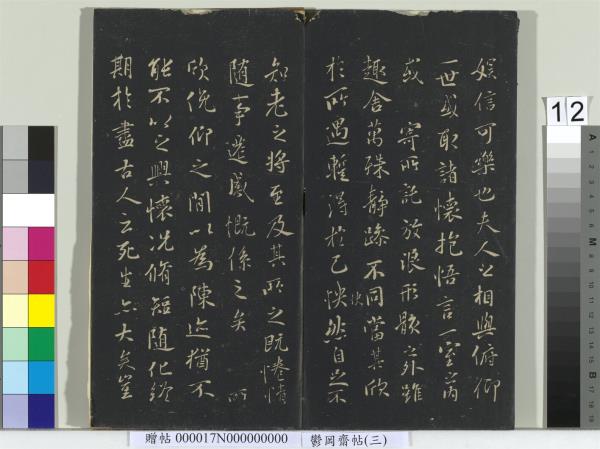 娛信可樂也夫人之相與俯仰
一世或取諸懷抱悟言一室之內
或寄所託放浪形骸之外雖
趣舍萬殊靜躁不同當其欣
於所遇輒得於己怏然自足不
快
知老之將至及其所之既惓情
隨事遷感慨係之矣 所
欣俛仰之間以為陳迹猶不
能不以之興懷況脩短隨化終
期於盡古人云死生亦大矣豈
12
A
1 2 3 4 5 6 M 8 9 10 11 12 13 14 15 B 17 18 19
贈帖 000017N000000000 鬱岡齋帖(三)